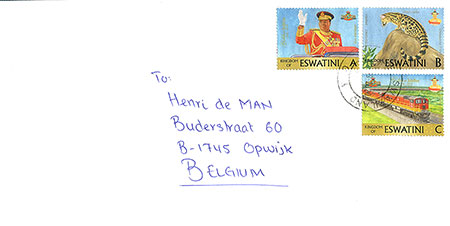 KINGDOM OF ESWATINI A
KINGDOM OF ESWATINI B
KINGDOM OF ESWATINI C
To:
Henri de MAN
Buderstraat 60
B-1745 Opwijk
BELGIUM